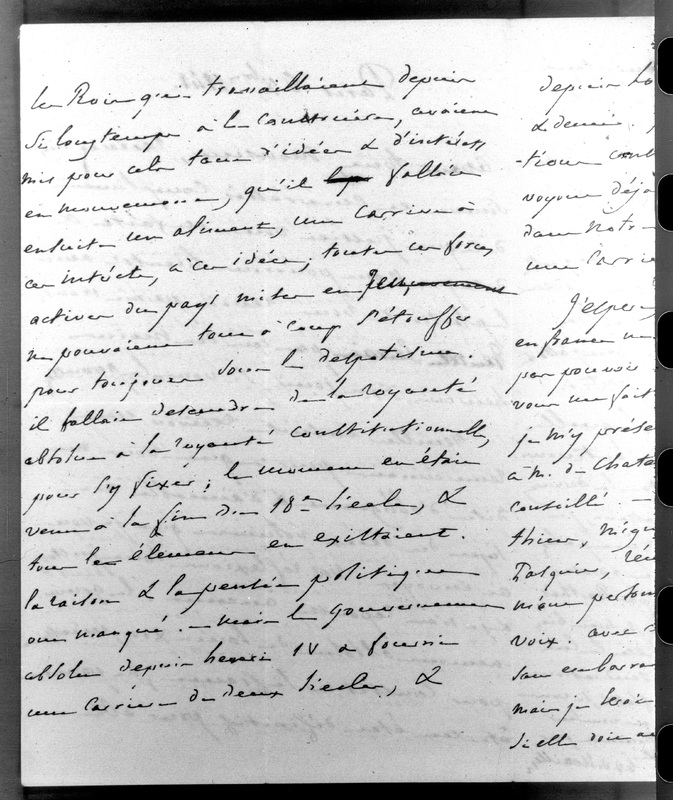 les Rois qui travailloient depuis
si longtemps à la construire, avoient
mis pour cela tant d'idées & d'intérêts
en mouvement, qu'il falloit
ensuite un aliment, une carrière à
ces intérêts, à ces idées; toutes ces forces
actives du pays mises en
ne pouvaient tout à coup s'étouffer
pour toujours sous le despotisme.
il falloit descendre de la royauté
absolue à la royauté constitutionnelle,
pour s'y fixer; le moment en étoit
venu à la fin du 18e siècle, &
tous les élémens en existaient.
la raison & la pensée politique
ont manqué. — mais le gouvernement
absolu depuis henri IV a fourni
une carrière de deux siècles, &
depuis
& demi.
-tions
voyons déjà
dans notre
une carriè
J'espère
en france
par pouvoir
vous me fait
je m'y prése
à M. de Chate
conseillé. —
thiers, Migne
Pasquier,
même person
voix. avec
sans embarras
mais je serois
si elle